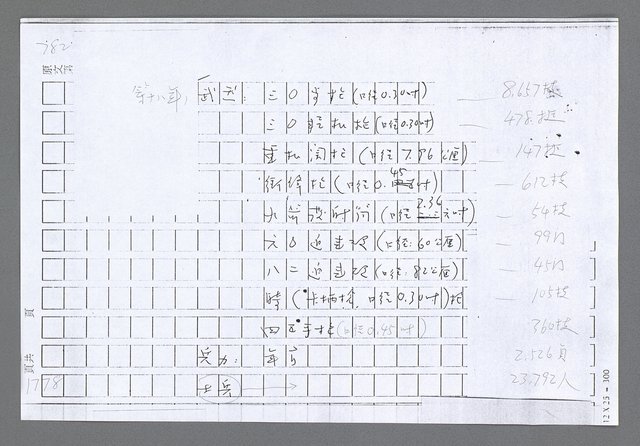 782
第十八軍，武器：三〇步槍（口徑0.30吋） 8.657枝
三〇輕機槍（口徑0.30吋） 478挺
重機関槍（口徑7.96公厘） 147挺
衝鋒槍（口徑0.45吋） 612枝
火箭發射筒（口徑2.36吋） 54枝
六〇迫击砲（口徑：60公厘） 99门
八二迫击砲（口徑：82公厘） 45门
（卡柄槍，口徑0.30吋） 105枝
四五手槍（口徑0.45吋） 360枝
兵力：軍官 2.526員
士兵 23.792人
頁
頁共
1778
12 X 25 = 300